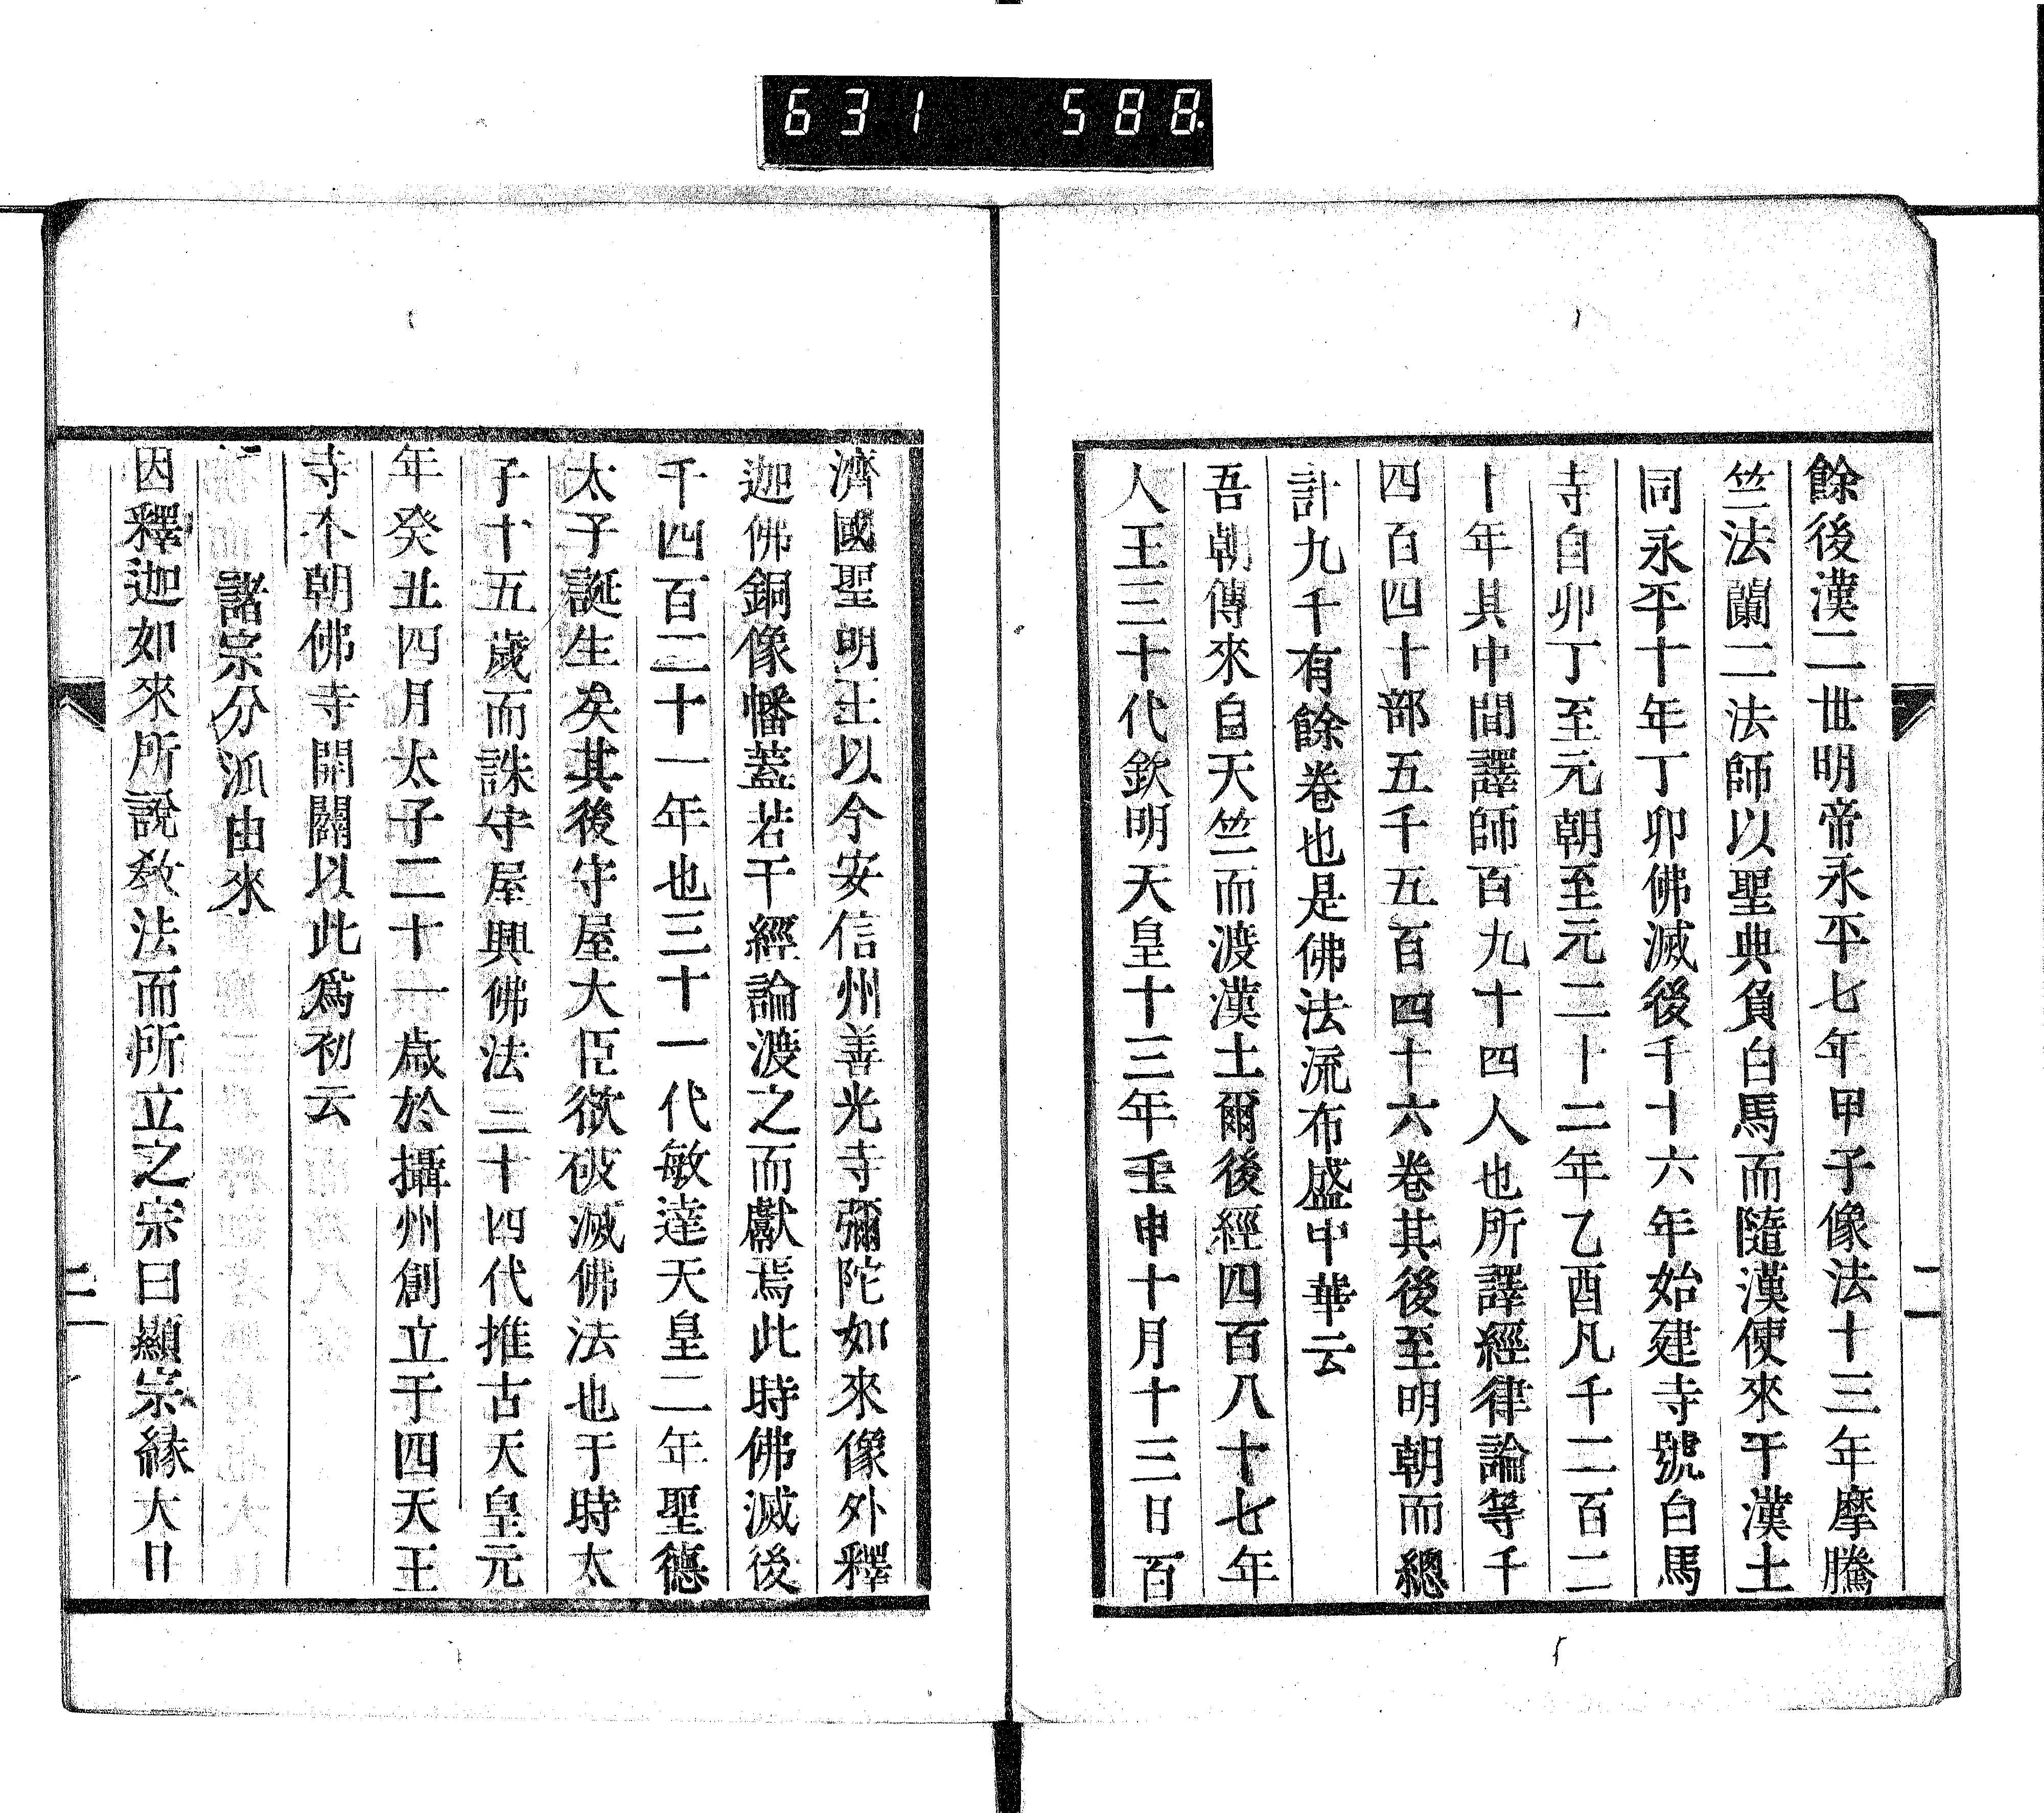 631 588
餘後漢二世明帝永平七年甲子像法十三年摩騰
竺法蘭二法師以聖典負白馬而隨漢使來于漢土
同永平十年丁卯佛滅後千十六年始建寺號白馬
寺自卯丁至元朝至元二十二年乙酉凡千二百二
十年其中間譯師百九十四人也所譯經律論等千
四百四十部五千五百四十六卷其後至明朝而總
計九千有餘卷也是佛法流布盛中華云
吾朝傳來自天竺而渡漢土爾後經四百八十七年
人王三十代欽明天皇十三年壬申十月十三日百
二
濟國聖明王以今安信州善光寺彌陀如來像外釋
迦佛銅像幡蓋若干經論渡之而獻焉此時佛滅後
千四百二十一年也三十一代敏達天皇二年聖德
太子誕生矣其後守屋大臣欲破滅佛法也于時太
子十五歲而誅守屋興佛法三十四代推古天皇元
年癸丑四月太子二十一歳於攝州創立于四天王
寺本朝佛寺開闢以此爲初云
諸宗分派由來
因釋迦如來所說敎法而所立之宗曰顯宗緣大日
三